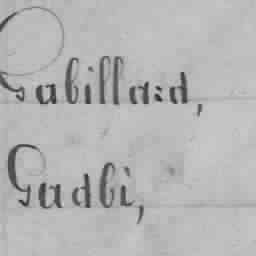 Gabillard,
Gadbi,